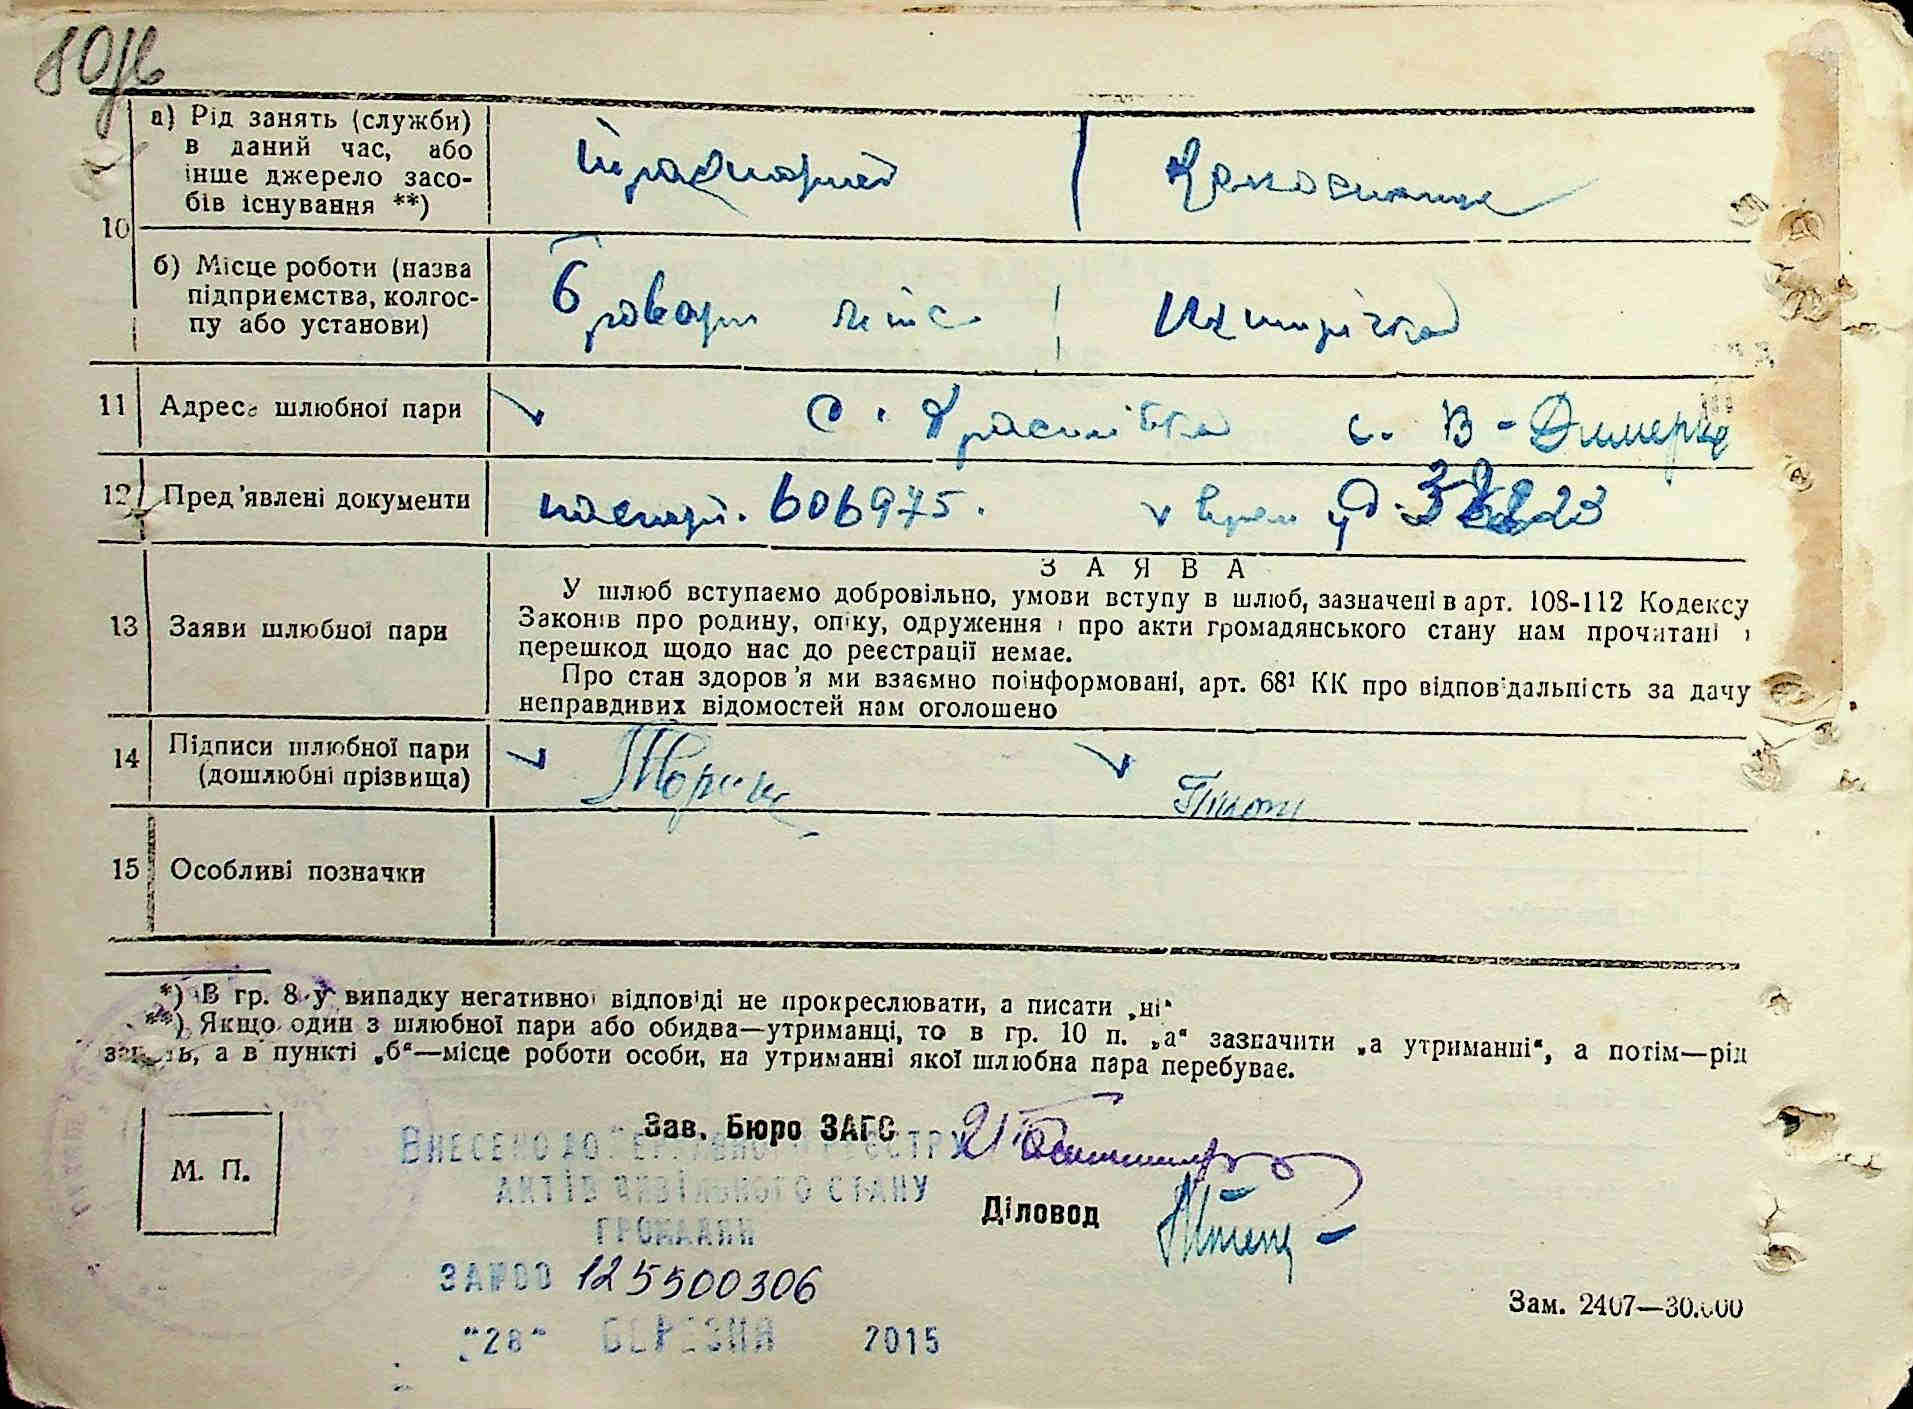 а) Рід занять (служби)
в даний час, або
інше джерело засо-
бів існування **)
10
б) Місце роботи (назва
підприємства, колгос-
пу або установи)
11 Адреса шлюбної пари
с. с. В-Димерка
12 Пред'явлені документи
паспорт. 606975.
13 Заяви шлюбної пари
ЗАЯВА
У шлюб вступаємо добровільно, умови вступу в шлюб, зазначені в арт. 108-112 Кодексу
Законів про родину, опіку, одруження і про акти громадянського стану нам прочитані і
перешкод щодо нас до реєстрації немає.
Про стан здоров'я ми взаємно поінформовані, арт. 68¹ КК про відповідальність за дачу
неправдивих відомостей нам оголошено
14 Підписи шлюбної пари
(дошлюбні прізвища)
15 Особливі позначки
*) В гр. 8 у випадку негативної відповіді не прокреслювати, а писати „ні“
**) Якщо один з шлюбної пари або обидва—утриманці, то в гр. 10 п. „а“ зазначити „а утриманні“, а потім—рід
занять, а в пункті „б“—місце роботи особи, на утриманні якої шлюбна пара перебуває.
М. П.
Зав. Бюро ЗАГС
Внесено до Державного реєстру
актів цивільного стану
громадян
Діловод
за №00 125500306
"28" березня 2015
Зам. 2407—30.000